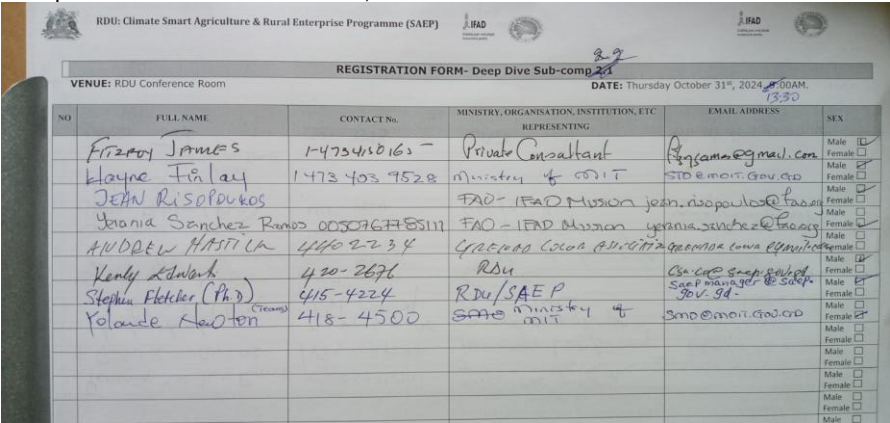 RDU: Climate Smart Agriculture & Rural Enterprise Programme (SAEP) IFAD IFAD
2.2
REGISTRATION FORM- Deep Dive Sub-comp 2.1
VENUE: RDU Conference Room DATE: Thursday October 31st, 2024, :00AM.
13:30
NO FULL NAME CONTACT No. MINISTRY, ORGANISATION, INSTITUTION, ETC REPRESENTING EMAIL ADDRESS SEX
Fitzroy James 1-473 Private Consultant @gmail.com Male Female
Hayne Finlay 1 473 403 9528 Ministry of MOIT STO@moit.gov.gd Male Female
JEAN RISOPOUKOS FAO-IFAD Mission jean.risopoulos@fao.org Male Female
Yerania Sanchez Ramos FAO-IFAD Mission yerania.sanchez@fao.org Male Female
ANDREW 440 2234 Male Female
Kenly Edwards 420-2676 RDU Male Female
Stephen Fletcher (Ph.D) 415-4224 RDU/SAEP Saepmanager@Saep.gov.gd Male Female
Yolande Newton (Teams) 418-4500 Ministry of MIT SMO@moit.gov.gd Male Female
Male
Female
Male
Female
Male
Female
Male
Female
Male